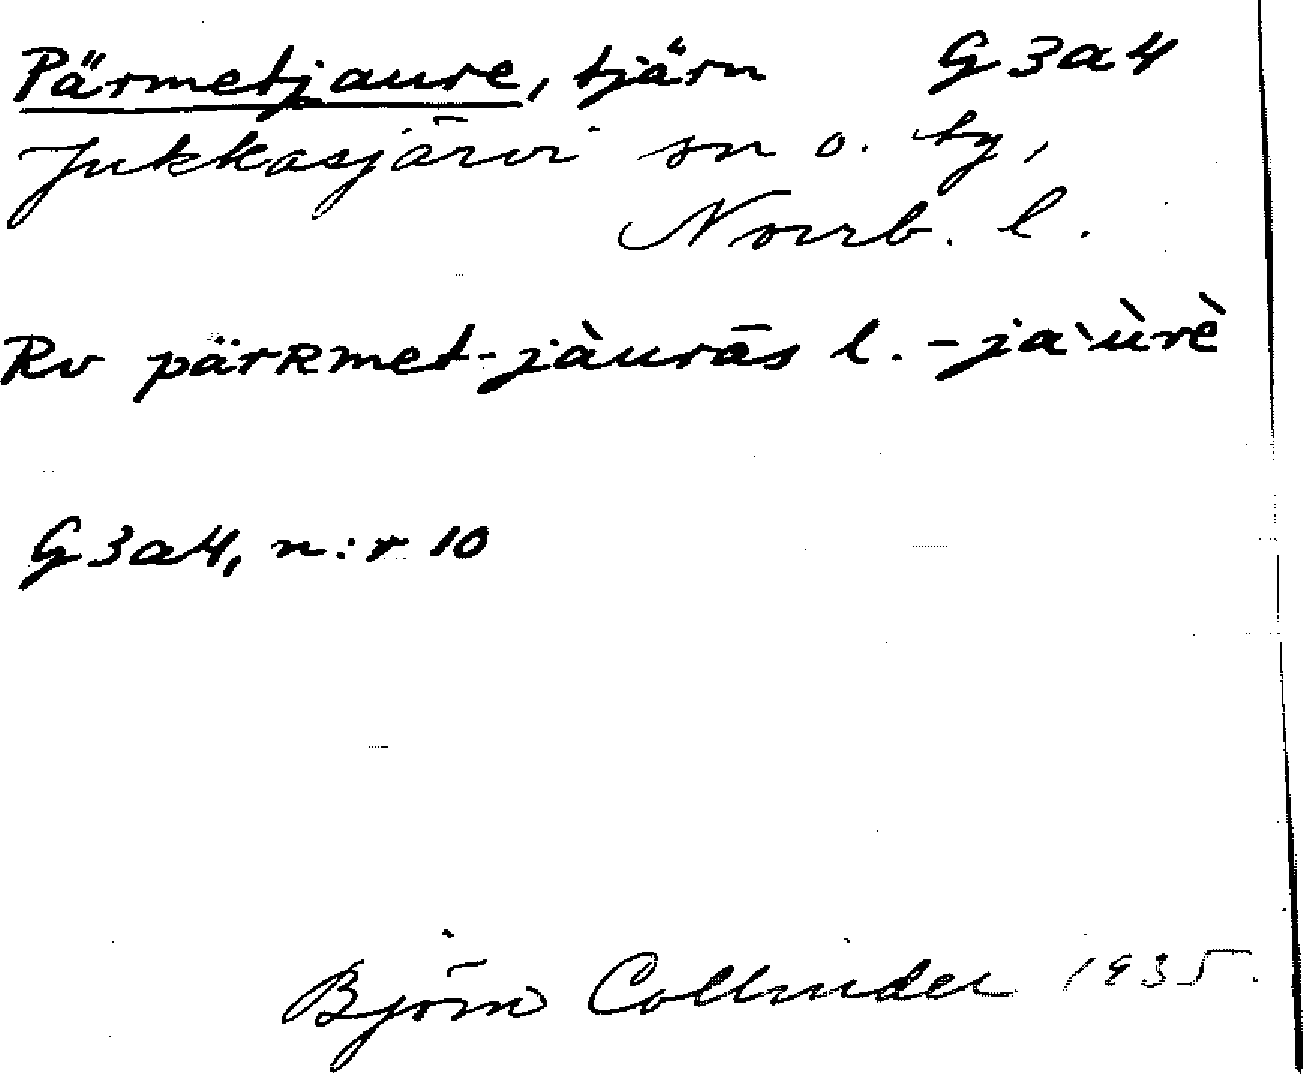 Pärmetjaure, tjärn G3a4
Jukkasjärvi sn o. tg,
Norrb. l.
Rv pärrmet-jàurās l. -ja`ùrè
G3a4, n:r 10
Björn Collinder 1935.